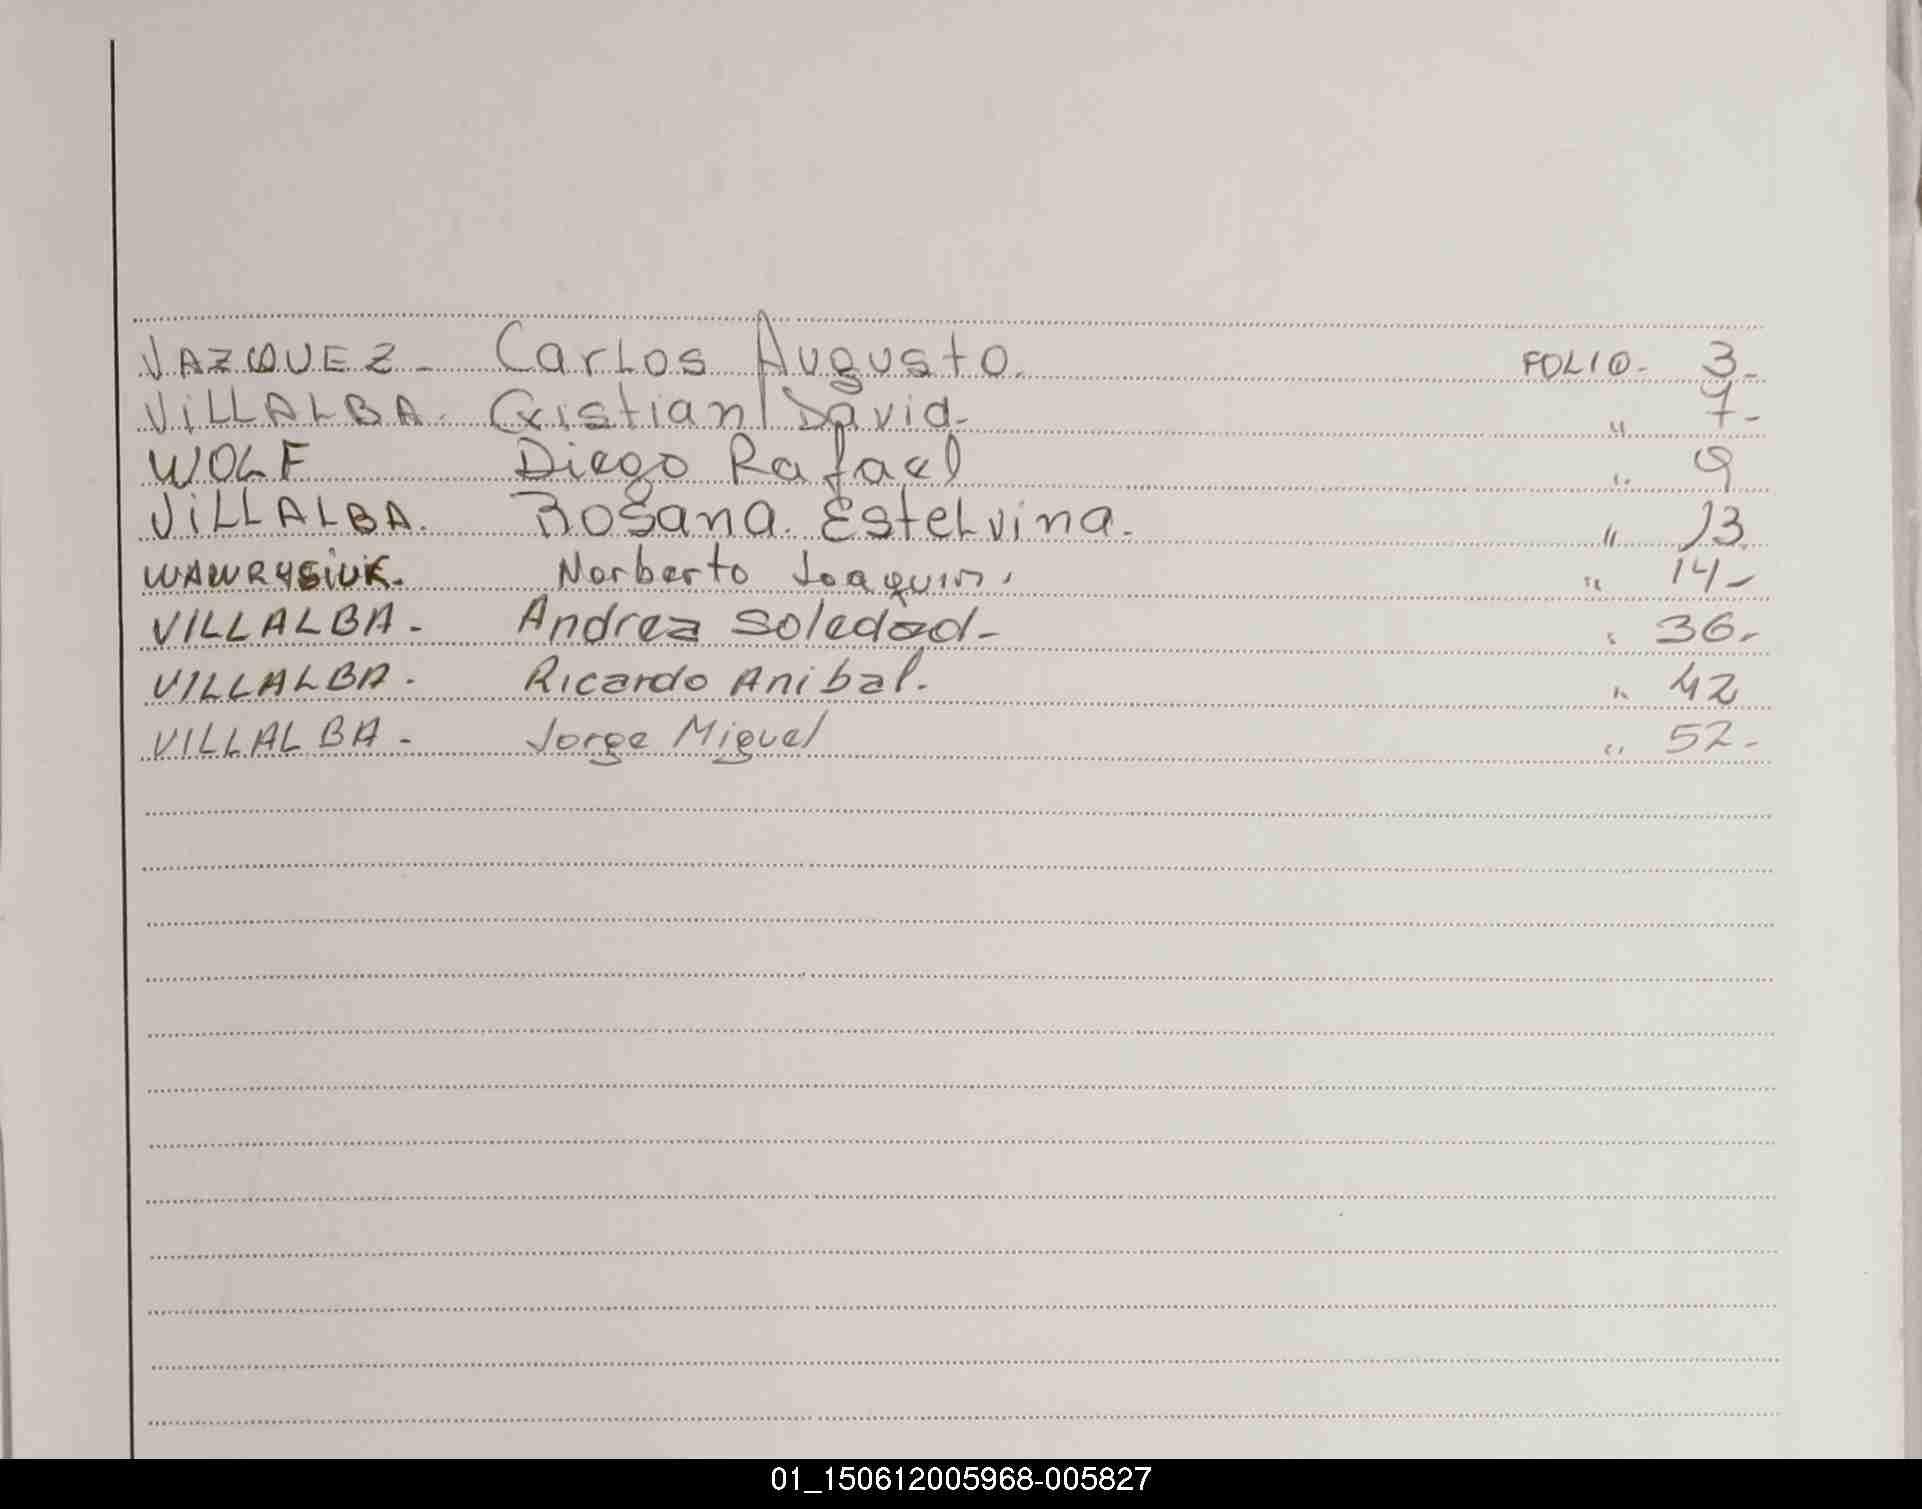 VAZQUEZ - Carlos Augusto. FOLIO - 3 -
ViLLALBA. Cristian David - " 7 -
WOLF Diego Rafael " 9
ViLLALBA. Rosana. EsteLvina. " 13.
WAWRYSiUK. Norberto Joaquin. " 14 -
VILLALBA - Andrea Soledad - " 36.
VILLALBA. Ricardo Anibal. " 42
VILLALBA - Jorge Miguel " 52 -
01_150612005968-005827